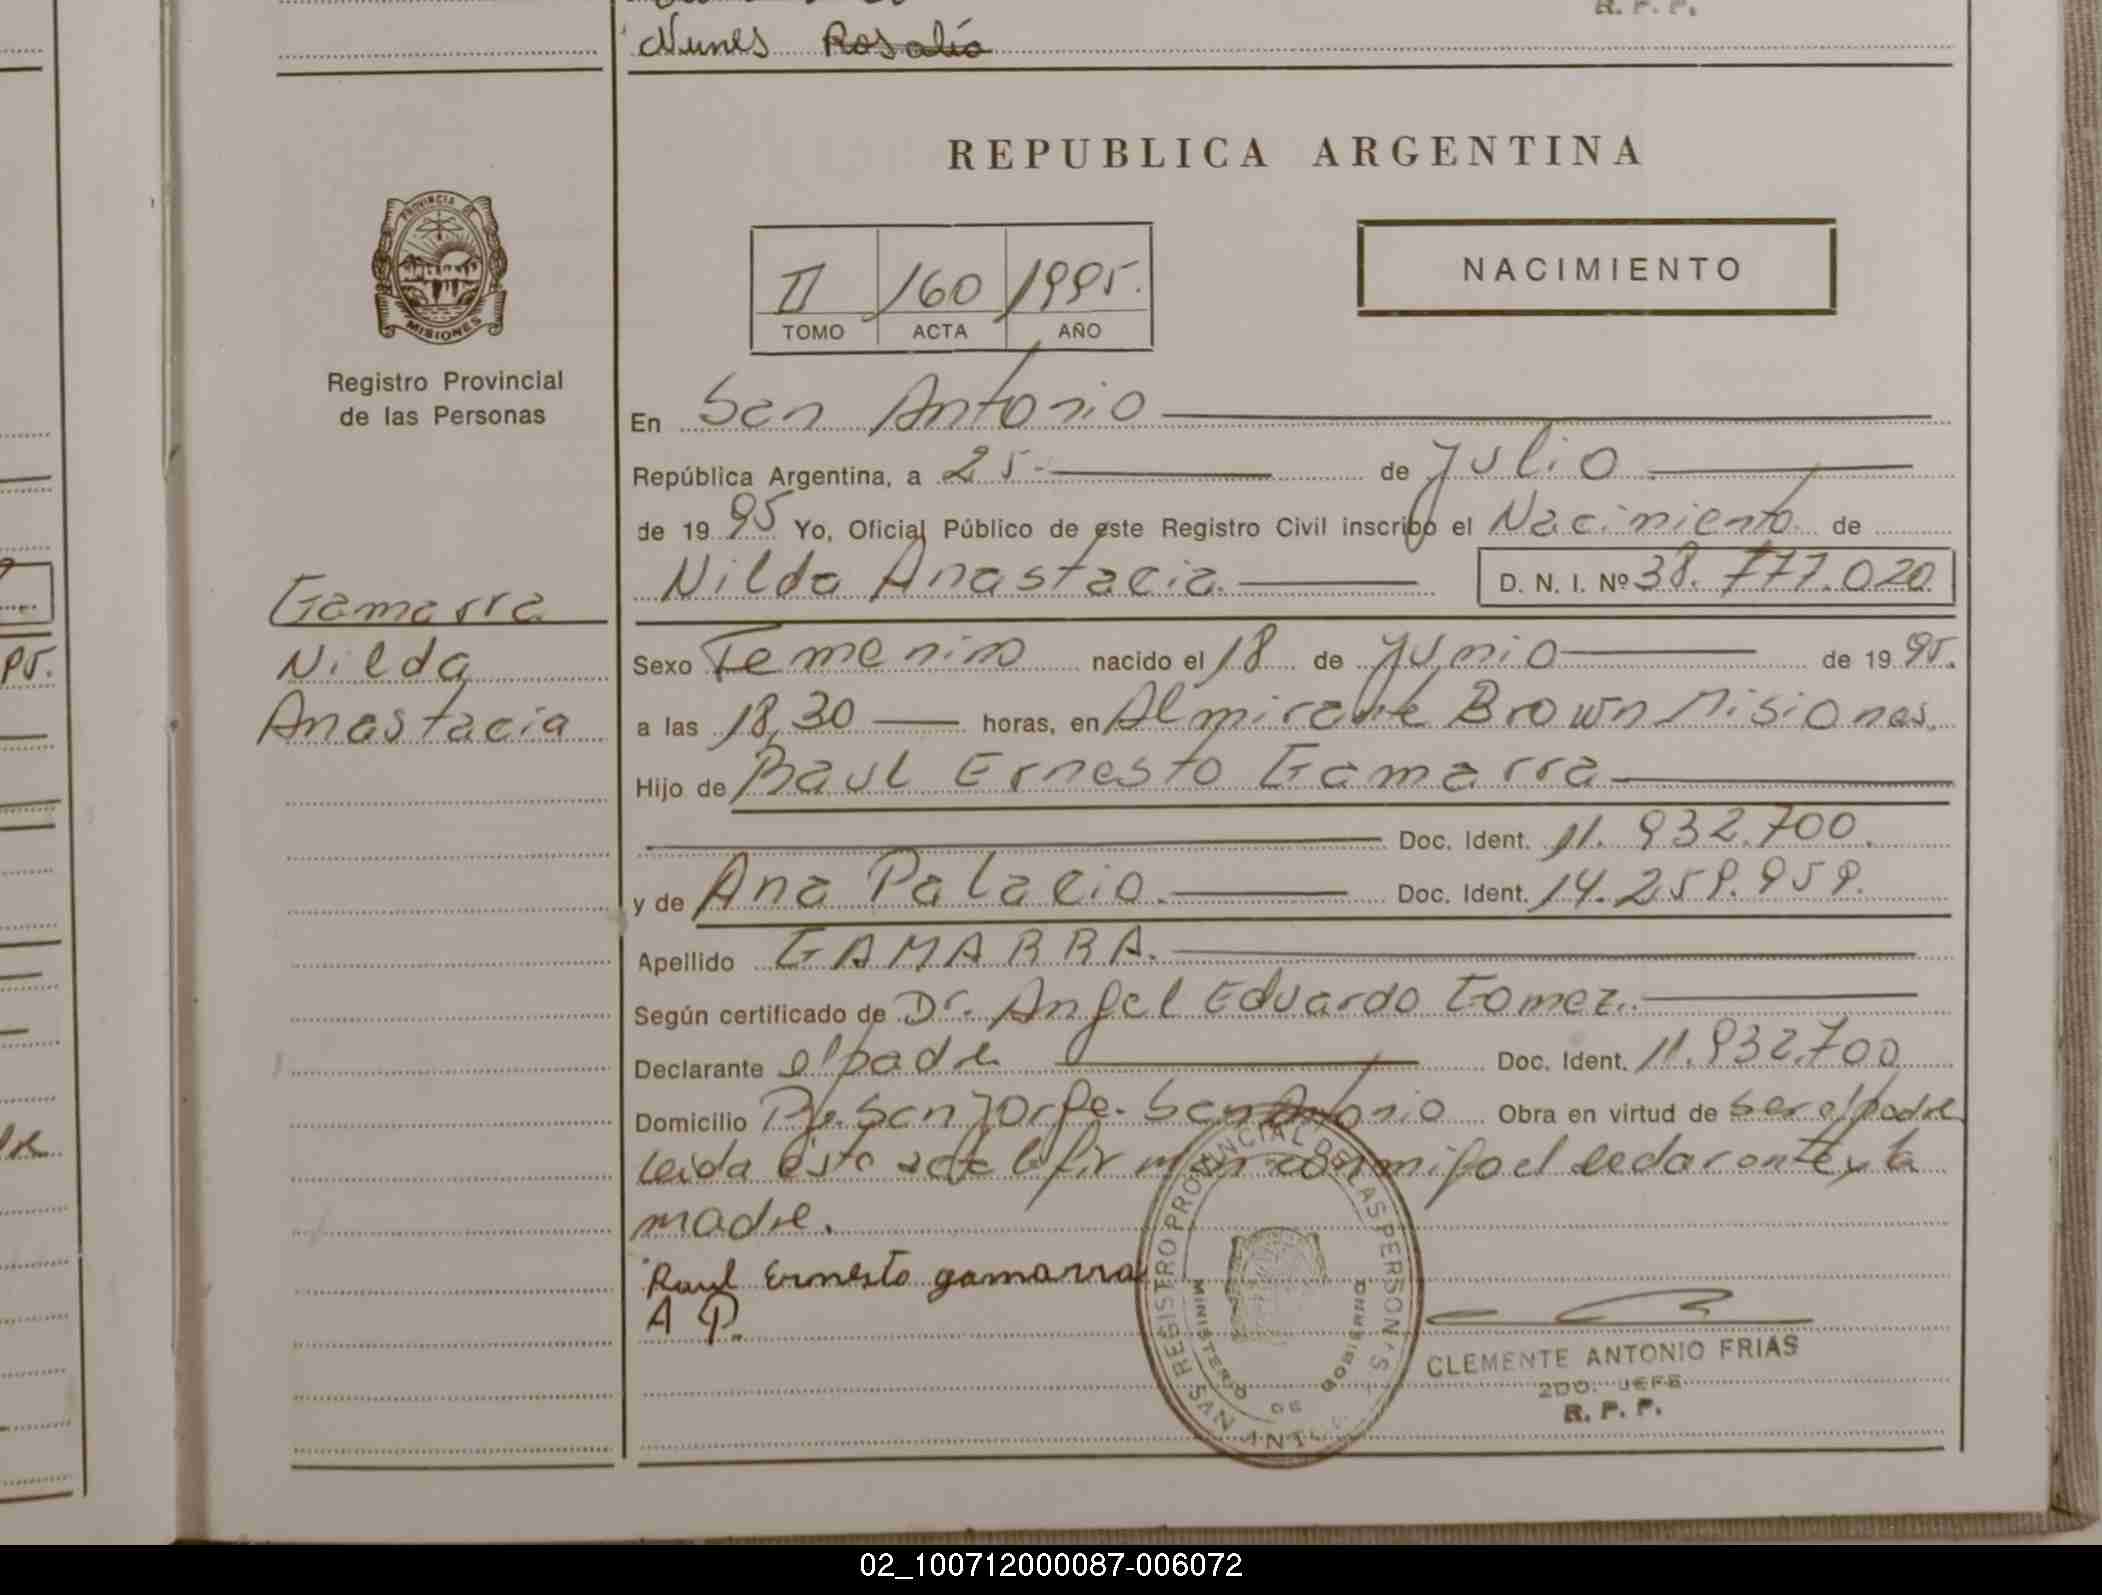 Nunes Rosalia
R. P. P.
REPUBLICA ARGENTINA
PROVINCIA DE
MISIONES
Registro Provincial
de las Personas
II 160 1995.
TOMO ACTA AÑO
NACIMIENTO
En San Antonio
República Argentina, a 25- de Julio
de 1995 Yo, Oficial Público de este Registro Civil inscribo el Nacimiento de
Nilda Anastacia. D. N. I. Nº 38.777.020
Gamarra
Nilda
Anastacia
Sexo Femenino nacido el 18 de Junio de 1995.
a las 18,30 horas, en Almirante Brown Misiones.
Hijo de Raul Ernesto Gamarra
Doc. Ident. 11.932.700.
y de Ana Palacio. Doc. Ident. 14.259.959.
Apellido GAMARRA.
Según certificado de Dr. Angel Eduardo Gomez.
Declarante el padre Doc. Ident. 11.932.700
Domicilio San Jorge. San Antonio Obra en virtud de ser el padre
leida esta acta la firman conmigo el declarante y la
madre.
Raul Ernesto gamarra
A P.
REGISTRO PROVINCIAL DE LAS PERSONAS
MINISTERIO DE GOBIERNO
CLEMENTE ANTONIO FRIAS
2DO. JEFE
R. P. P.
02_100712000087-006072